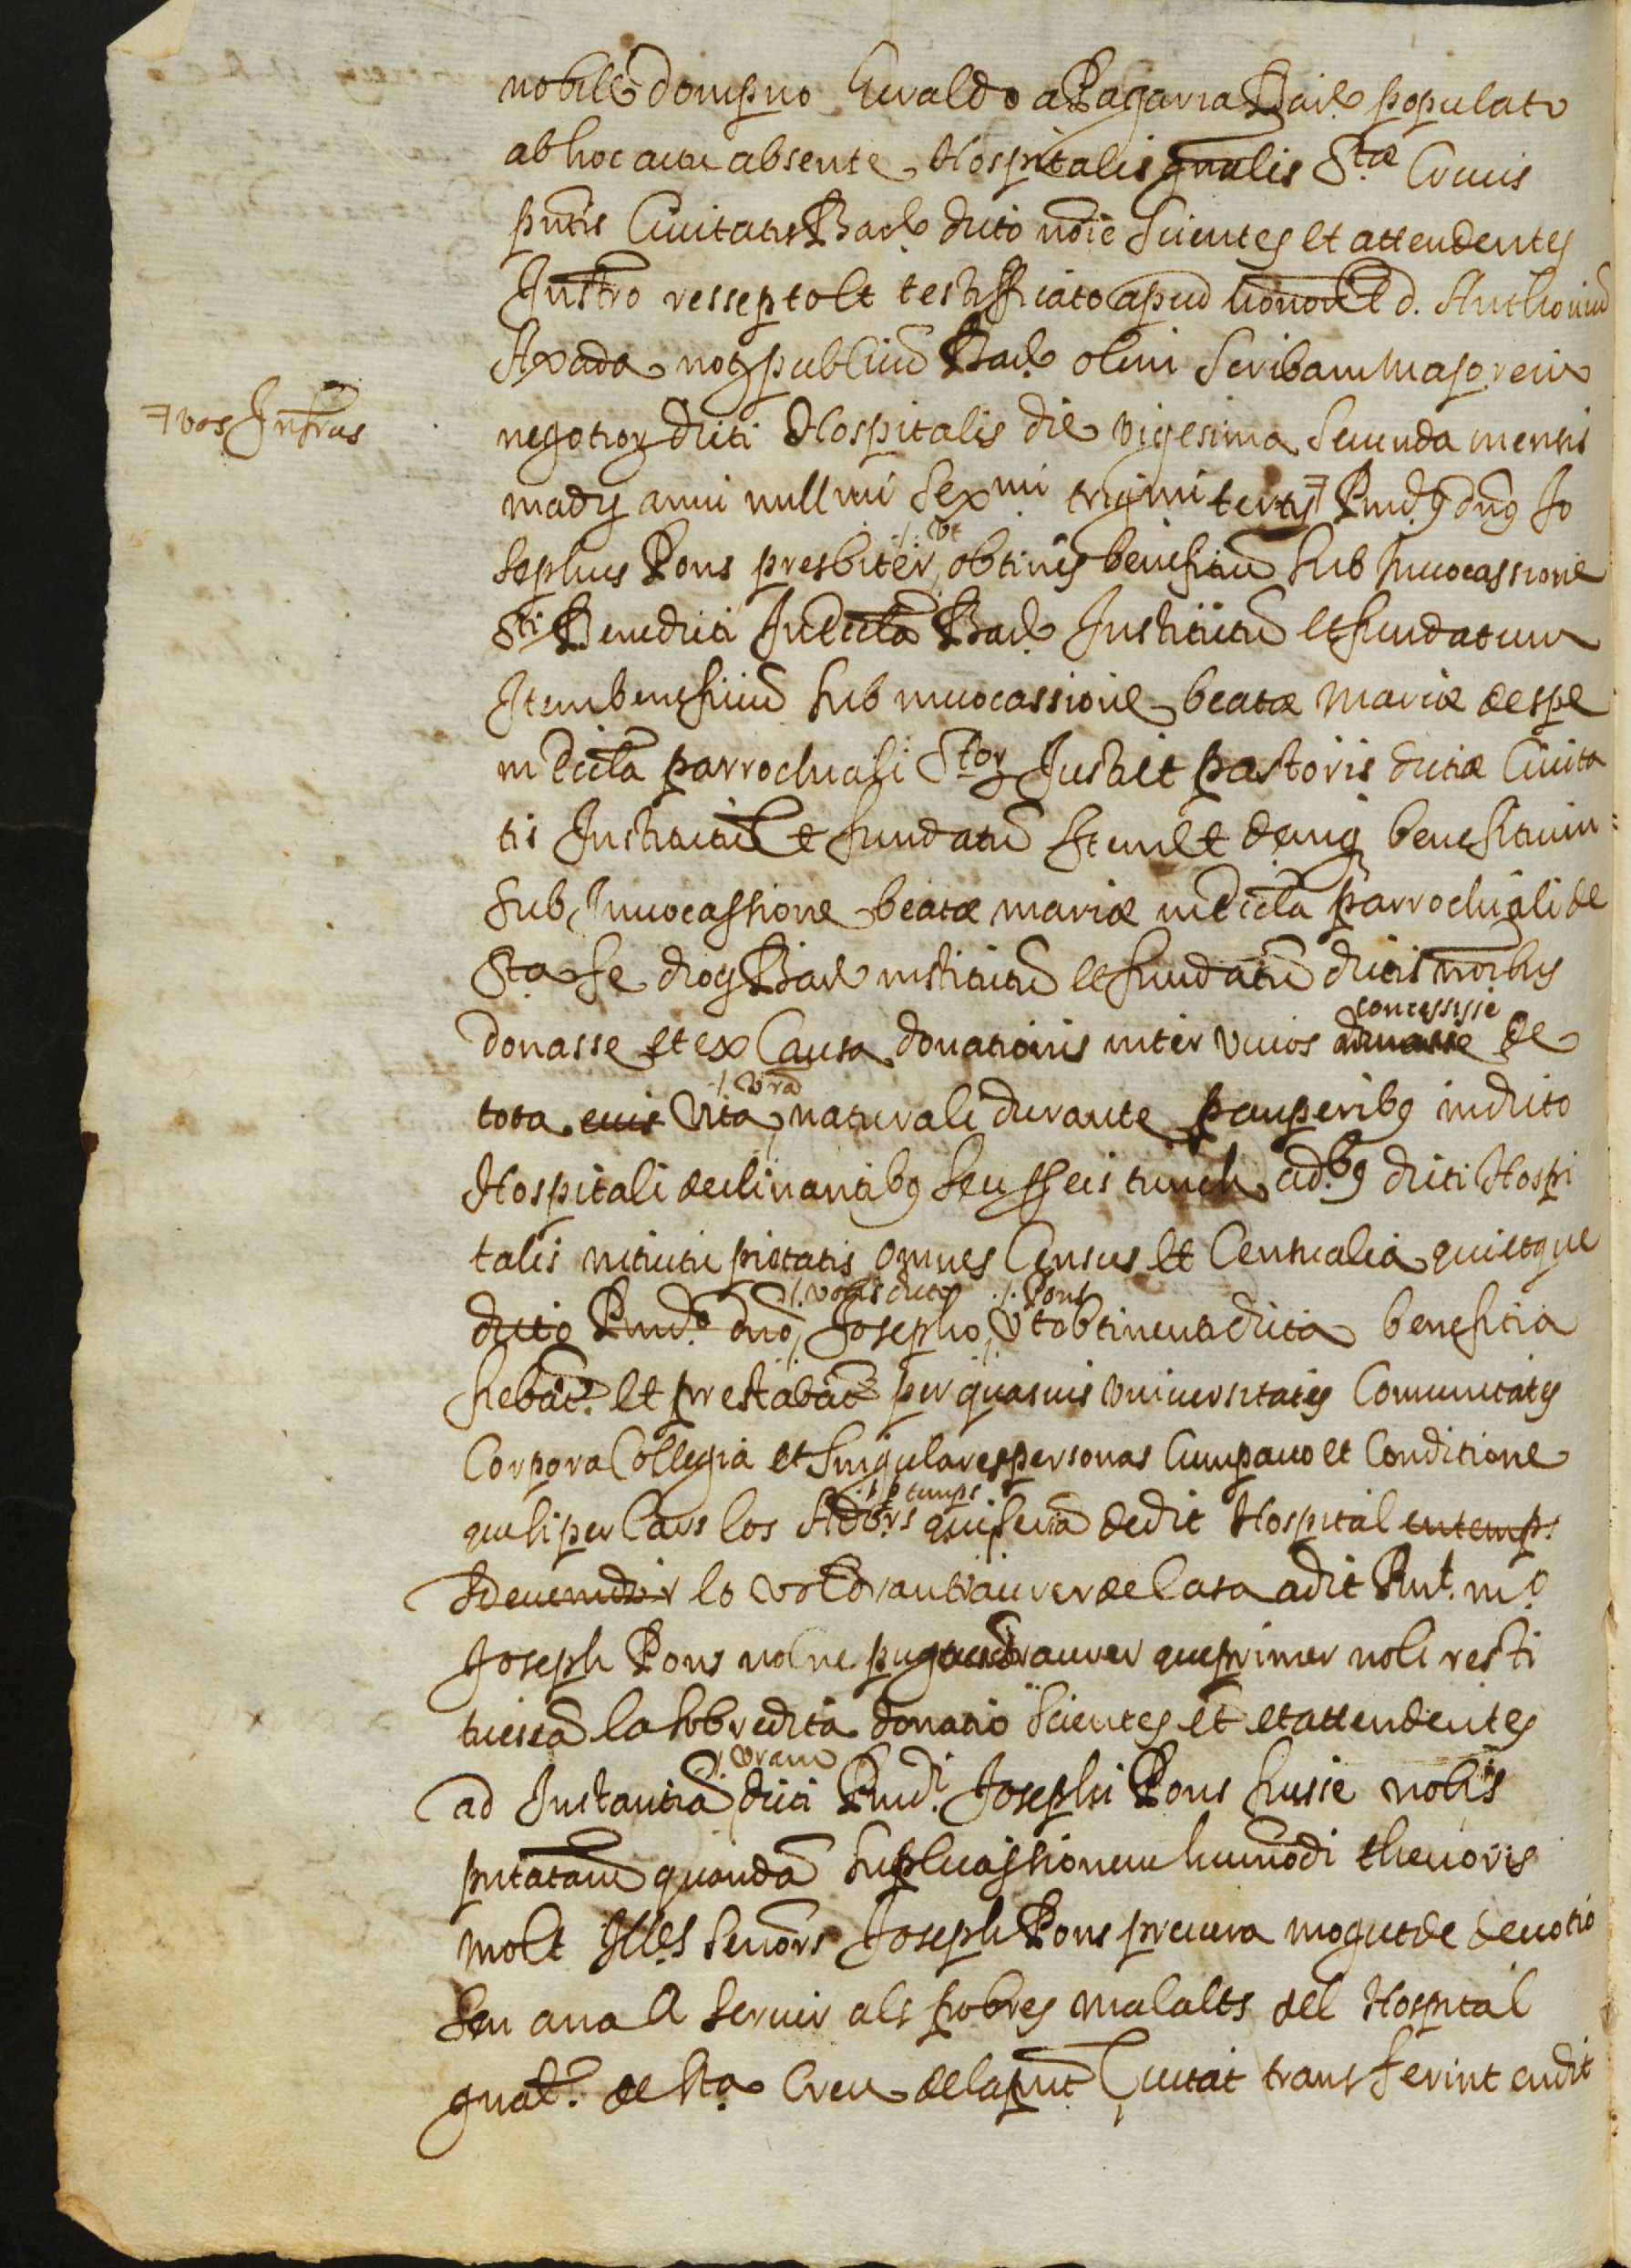 nobile dompno Guraldo a Pagaria Bar.e populato
ab hoc actu absente Hospitalis gnalis S.tæ Crucis
pntis Ciuitatis Bar.e dicto noie Scientes et attendentes
Instro resseptoet testifficato apud honor.l d. Anthoniu
Axada noty publicu Bar.e olim Scribam majorem
⹎ vos Infrus
negotior dicti Hospitalis die vigesima Secunda mensis
madij anni millmi Sex.mi trigmi tertij ⹎ Rnd.9 dng Jo
sephus Pons presbiter /. vt obtines benefitiu sub Inuocassione
S.ti Benedicti In eccla Bar.e Institutu et fundatum
Item benefitiu sub inuocassione beatæ Mariæ de spe
in eccla parrochiali S.tor Justi et pastoris dictæ Ciuita
tis Institutu et fundatu Item et deniq benefitium
Sub Inuocassione beatæ mariæ in eccla parrochiali de
Sta fe diog Bar.e institutu et fundatu dictis noibus
donasse et ex Causa donationis inter viuos donasse concessisse de
tota eius vita /. vra naturali durante pauperibg in dicto
Hospitali declinantibg seu ss eis tunch ad.bg dicti Hospi
talis intuitu pietatis omnes Census et Censualia quicque
dicto Rnd.o dno /. vobis dicto Josepho /. Pons vt obtinenti dicta benefitia
fiebat. et prestabat per quasuis vniuersitates Comunitates
Corpora Collegia et singulares personas Cum pacto et Conditione
que si per Cars los Adors /. p temps qui seria de dit Hospital en temps
Esdeuenidor lo voldran traurer de Casa a dit Rnt. m.o
Joseph Pons nol ne pugtuesen traurer que primer noli resti
tuissea la sobredita donatio Scientes et et attendentes
ad Instantia /. vram dicti Rnd.i Josephi Pons fusse nobis
pntatam quanda suplicassionem huiusmodi thenoris
Molt Ill.es Senors Joseph Pons preuera mogut de deuotio
sen ana A seruir als pobres malalts del Hospital
gnal. de Sta Creu de la pnt Ciutat transferint en dit